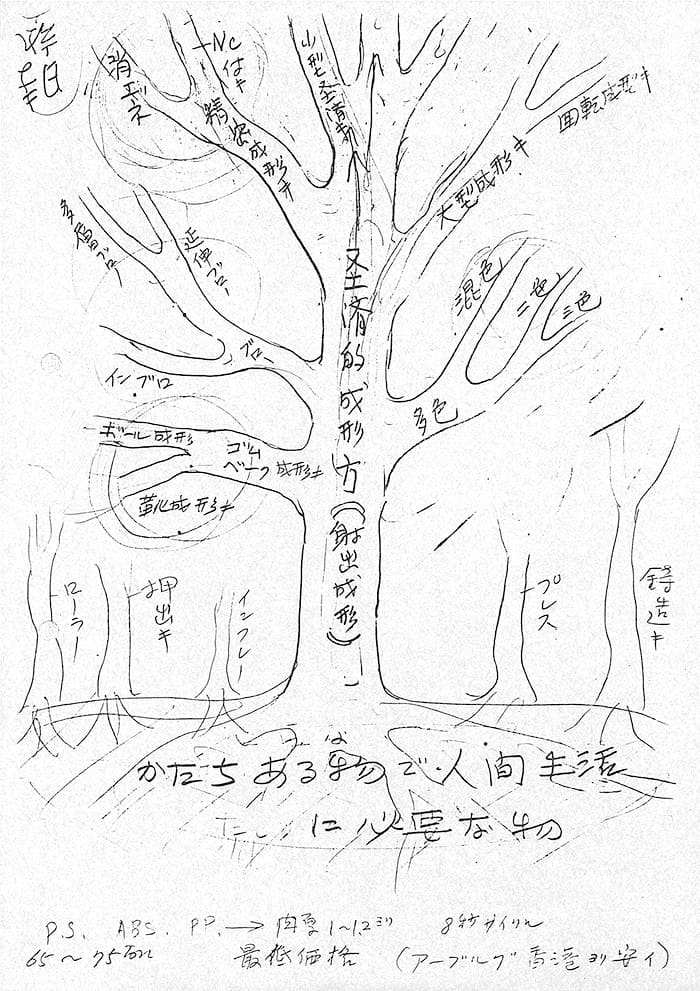 消エネ
NC付キ
精密成形キ
小型圣済キ
回転成型キ
大型成形キ
多層ブロー
延伸ブロー
ブロー
インブロ
混色
二色
三色
多色
圣済的成形方(射出成形)
ボール成形
ゴム
ベーク成形キ
靴成形キ
ローラー
押出キ
インフレー
プレス
鋳造キ
かたちある物で人間生活
に必要な物
P.S. ABS. PP. → 肉厚1〜1.2ミリ 8秒サイクル
最低価格